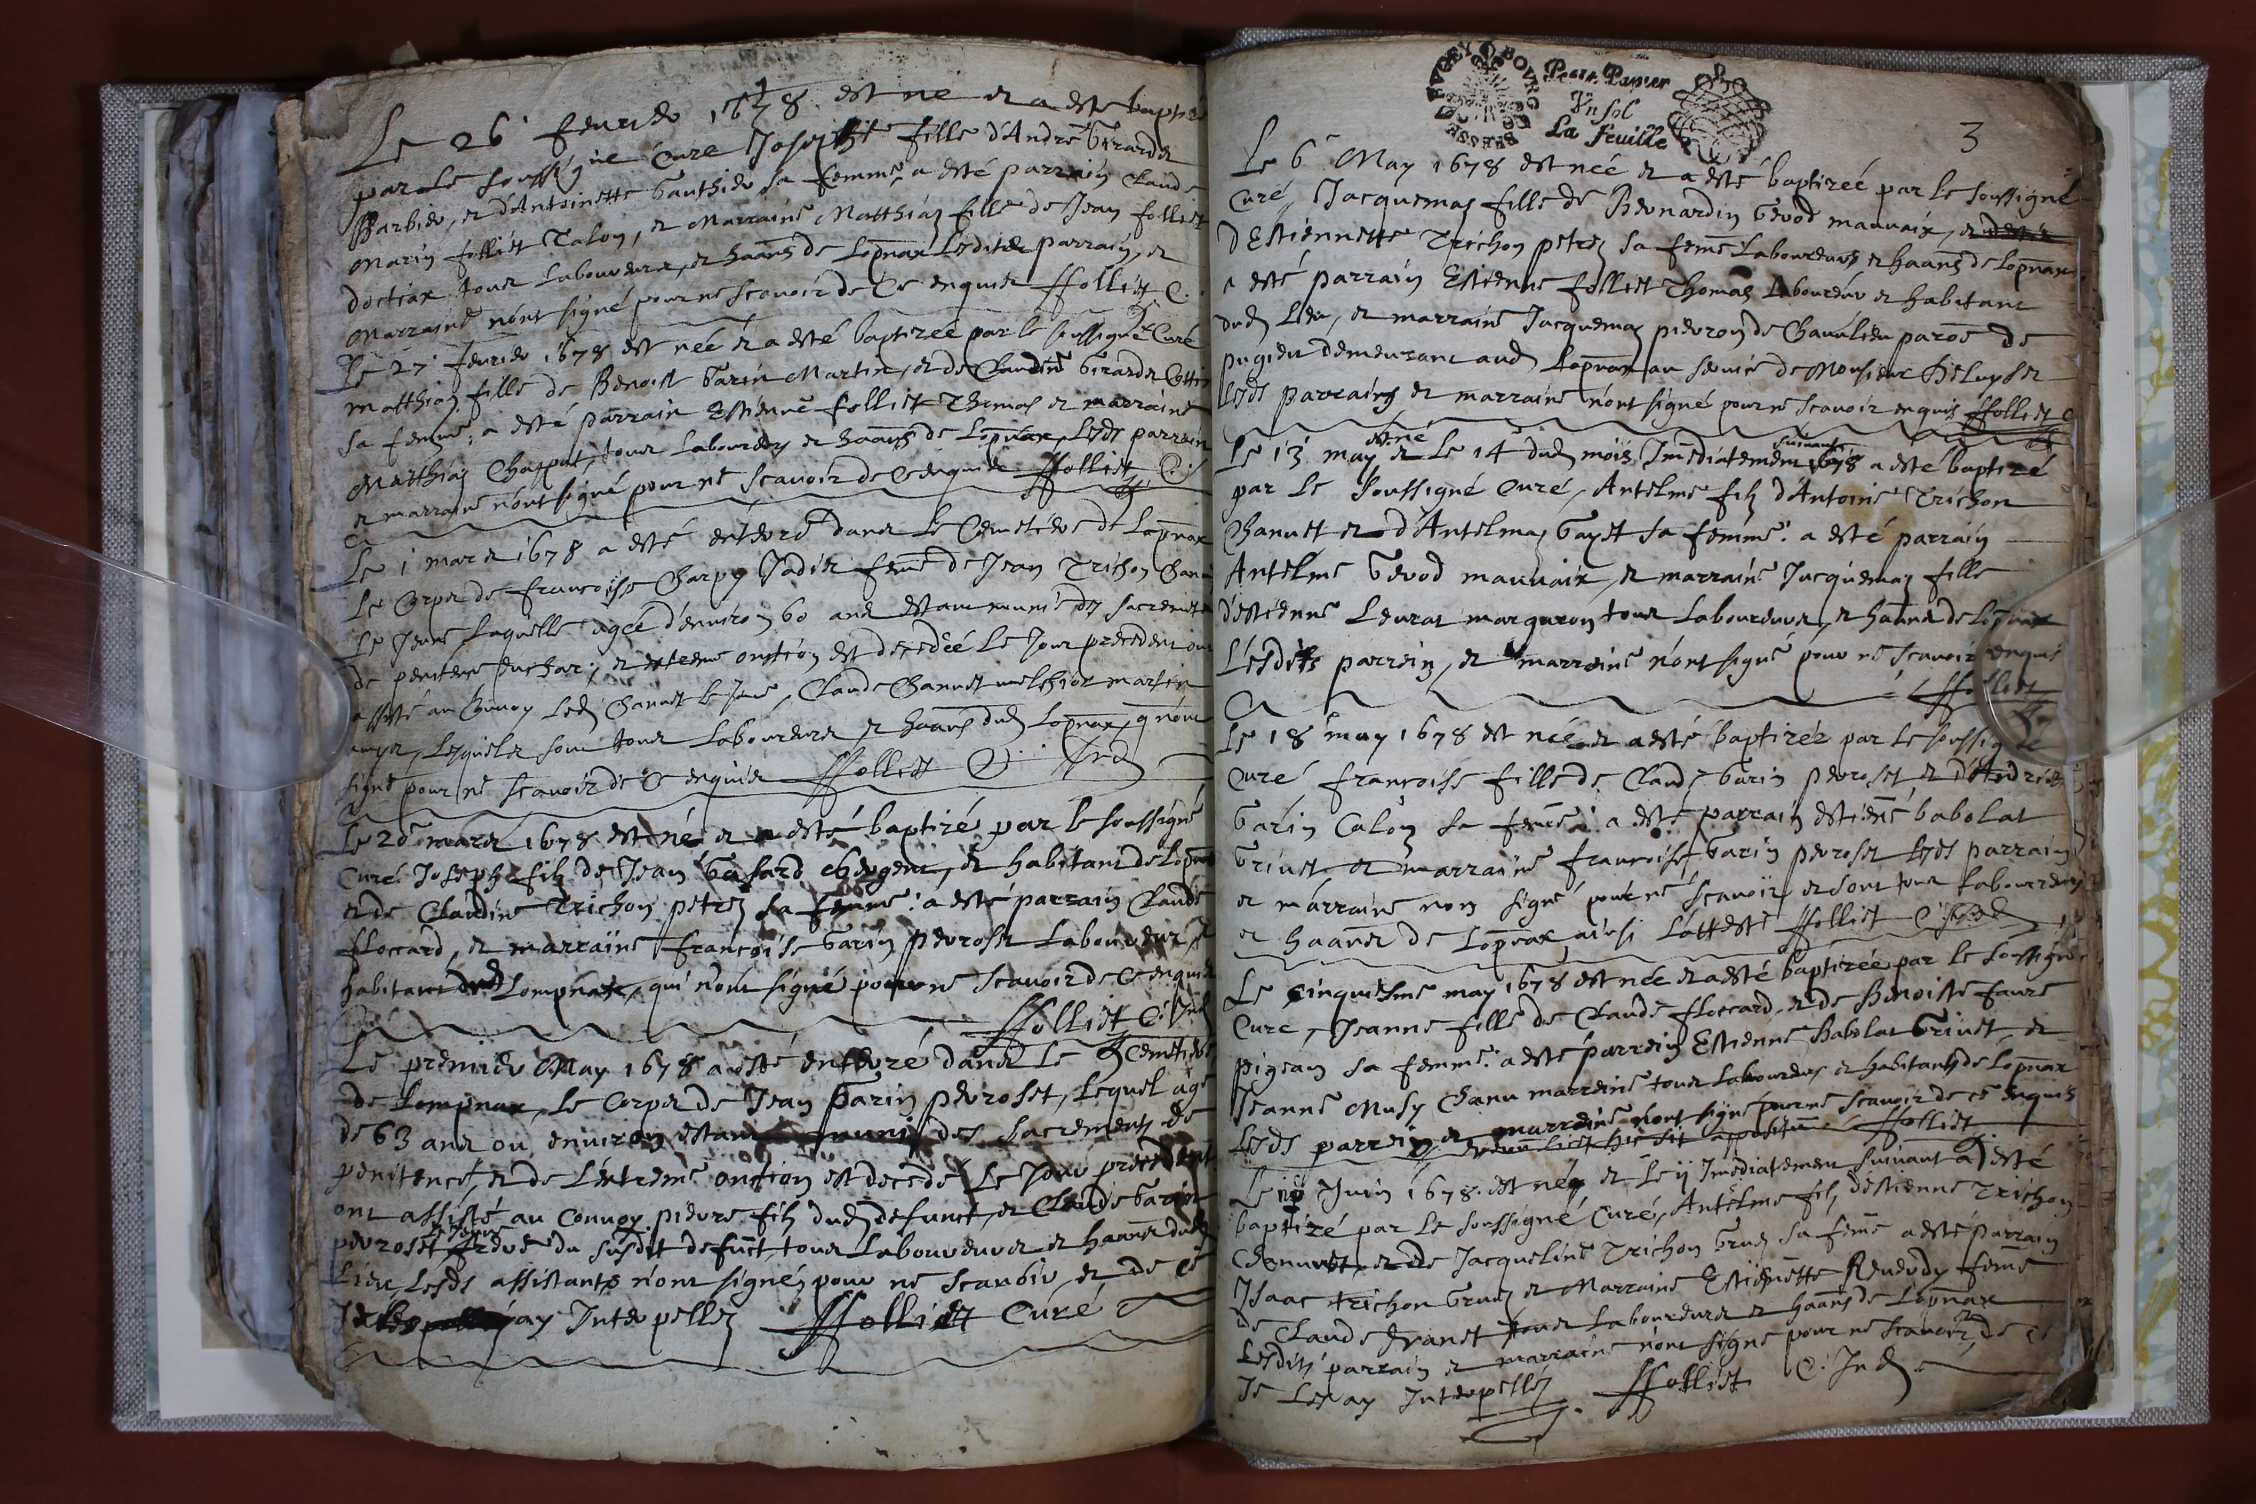 Le 26 feurier 1678 est ne et a esté baptisé
par le soussigné Curé Josephte fille d'André Girarder
Barbier, et d'Antoinette Gauthier sa femme, a esté parrain Claude
Marin folliet Talon, et Marraine Matthiaz fille de Jean folliet
tous laboureurs, et haãns de Lopnax Lesdits parrain, et
Marraine n'ont signé pour ne scavoir de ce enquis ffolliet C.
Le 27 feurier 1678 est née et a esté baptizée par le soussigné Curé
Matthiaz fille de Benoist Garin Martin, et de Claudine Girarder
sa femme, a esté parrain Estienne folliet Thomas et marraine
Matthiaz Charput, tous Laboureurs et haãns de Lopnax, Lesds parrain
et marraine n'ont signé pour ne scavoir de ce enquis ffolliet C.
Le 1 mars 1678 a esté enterré dans le Cemetiere de Lopnax
Le Corps de françoise Charpy Jadis femme de Jean Trichon
Le Jeune Laquelle agée d'enuiron 60 ans estant munie des sacremens
de penitence Euchar. et extreme onction est decedée le Jour precedent ont
assisté au Conuoy Led Chanet le Jeune, Claude Chanet melchior martin
Lesquels sont tous Laboureurs et haãns dud Lopnax, q n'ont
signé pour ne scavoir de ce enquis ffolliet C.
Le 20 mars 1678 est né et a esté baptizé par le soussigné
Curé Joseph filz de Jean Gasard et habitant de Lopnax
et de Claudine Trichon petrez sa femme: a esté parrain Claude
floccard, et marraine françoise Garin peroset Laboureurs et
habitans dud Lompnax, qui n'ont signé pour ne scavoir de ce enquis
ffolliet C.
Le premier May 1678 a esté enterré dans le Cemetiere
de Lompnax, le Corps de Jean Garin peroset, Lequel agé
de 63 ans ou enuiron estant muni des sacrements de
penitence, et de L'extreme onction est decedé Le Jour precedent
ont assisté au Conuoy pierre filz dud defunct, et Claude Garin
peroset, du susdit defunct, tous Laboureurs et haãns dud
Lieu, Lesds assistants n'ont signéz pour ne scauoir, et de ce
Je les ay Interpellez ffolliet Curé
BOVRG
Petit Papier
Vn sol
La feuille
3
Le 6 May 1678 est née et a esté baptizeé par le soussigné
Curé, Jacquemaz fille de Bernardin Geuod mauuaix, et
D'Estiennette Trichon petrez sa femẽ Laboureurs et haãns de Lopnax
a esté parrain Estienne folliet Thomas Laboureur et habitant
dud Lieu, et marraine Jacquemaz pieuroz de Chaualieu paroẽ de
pugieu demeurant aud Lopnax au seruice de Monsieur
Lesds parrains et marraine n'ont signé pour ne scavoir enquis ffolliet C
Le 13 may est né et Le 14 dud mois Imediatement suiuant 1678 a esté baptizé
par Le Soussigné Curé, Antelme filz d'Antoine Trichon
Chanuet et d'Antelmaz Gayet sa femme: a esté parrain
Antelme Geuod mauuaix, et marraine Jacquemaz fille
d'estienne Leurat marguron tous Laboureurs, et haãns de Lopnax
Lesdits parrain, et marraine n'ont signé pour ne scavoir enquis
ffolliet
Le 18 may 1678 est neé et a esté baptizée par le soussigné
Curé françoise fille de Claude Garin peroset et d'Andrée
Garin Calon sa femẽ: a esté parrain estienẽ babolat
Griuet et marraine françoise Garin peroset Lesds parrain
et marraine non signé pour ne scavoir, et sont tous Laboureurs
et haãns de Lopnax, ainsi L'atteste ffolliet C
Le cinquiesme may 1678 est née et a esté baptizée par le soussigné
Curé, Jeanne fille de Claude floccard, et de Benoiste faure
pigeaz sa femme: a esté parrein Estienne Babolat Griuet, et
Jeanne Musy Chanu marreine tous Laboureurs et habitants de Lopnax
Lesds parrein et marreine n'ont signé pour ne scauoir de ce enquis
hic sit appositum ffolliet
Le 10 Juin 1678. est néy et Le 11 Imediatement suiuant a esté
baptizé par Le soussigné Curé, Antelme filz d'Estienne Trichon
Chanuet, et de Jacqueline Trichon Gruz sa femẽ a esté parrain
Isaac trichon Gruz et Marraine Estiennette Reuerdy femẽ
de Claude Juanet tous Laboureurs et haãns de Lopnax
Lesdits parrain et marraine n'ont signé pour ne scauoir, de ce
Je Les ay Interpellez ffolliet C. Ind